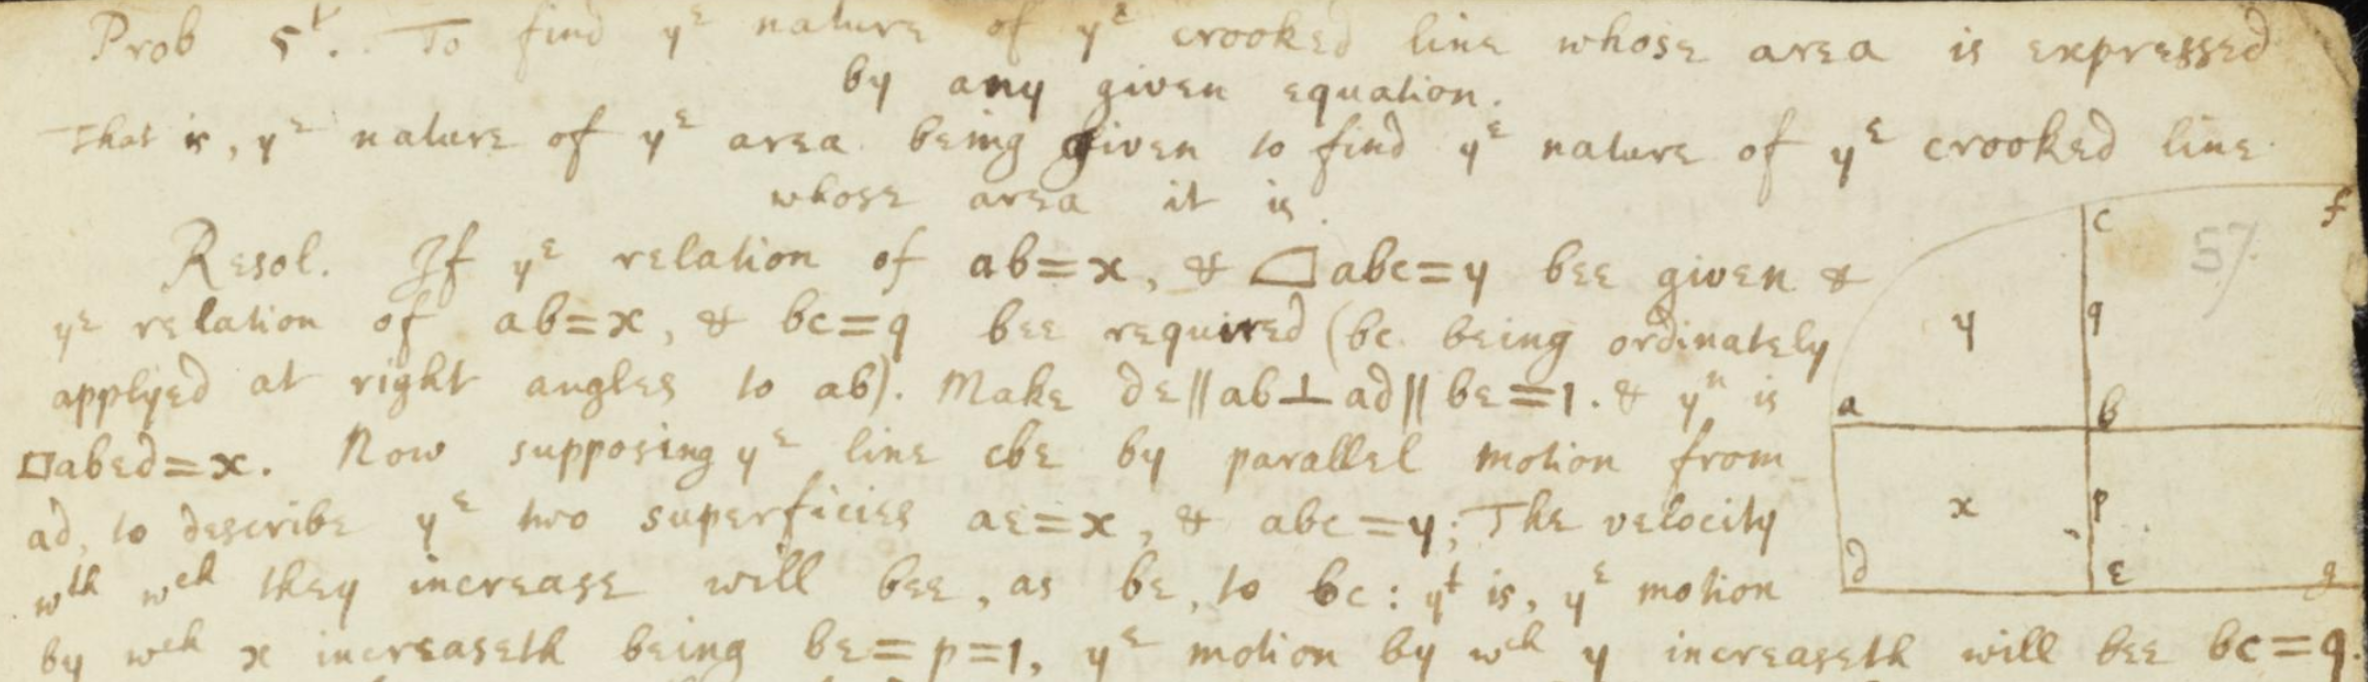 Prob 5t. To find ye nature of ye crooked line whose area is expressed
by any given equation.
That is, ye nature of ye area being given to find ye nature of ye crooked line
whose area it is.
Resol. If ye relation of ab=x, & ⌓abc=y bee given &
ye relation of ab=x, & bc=q bee required (bc being ordinately
applyed at right angles to ab). Make de||ab⊥ad||be=1. & yn is
▭abed=x. Now supposing ye line cbe by parallel motion from
ad, to describe ye two superficies ae=x, & abc=y; The velocity
wth wch they increase will bee, as be, to bc: yt is, ye motion
by wch x increaseth being be=p=1, ye motion by wch y increaseth will bee bc=q.
c f
57
y q
a b
x p
d e g